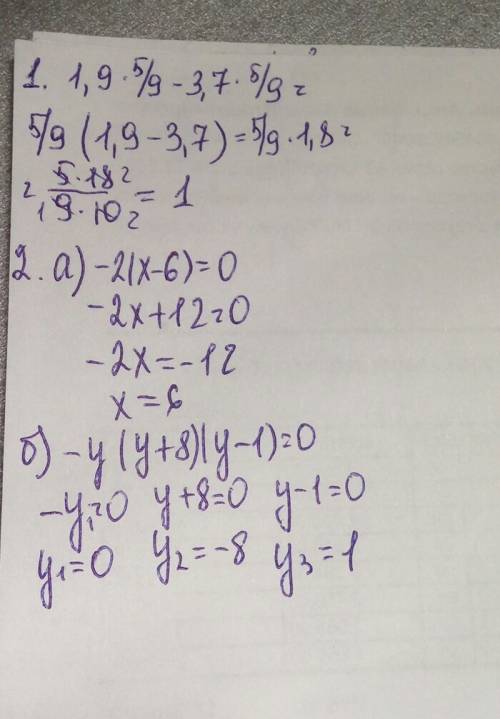 1. 1,9·5/9-3,7·5/9=
5/9(1,9-3,7)=5/9·1,8=
= 5·18/9·10 = 1
2. а) -2(x-6)=0
-2x+12=0
-2x=-12
x=6
б) -y(y+8)(y-1)=0
-y₁=0 y+8=0 y-1=0
y₁=0 y₂=-8 y₃=1